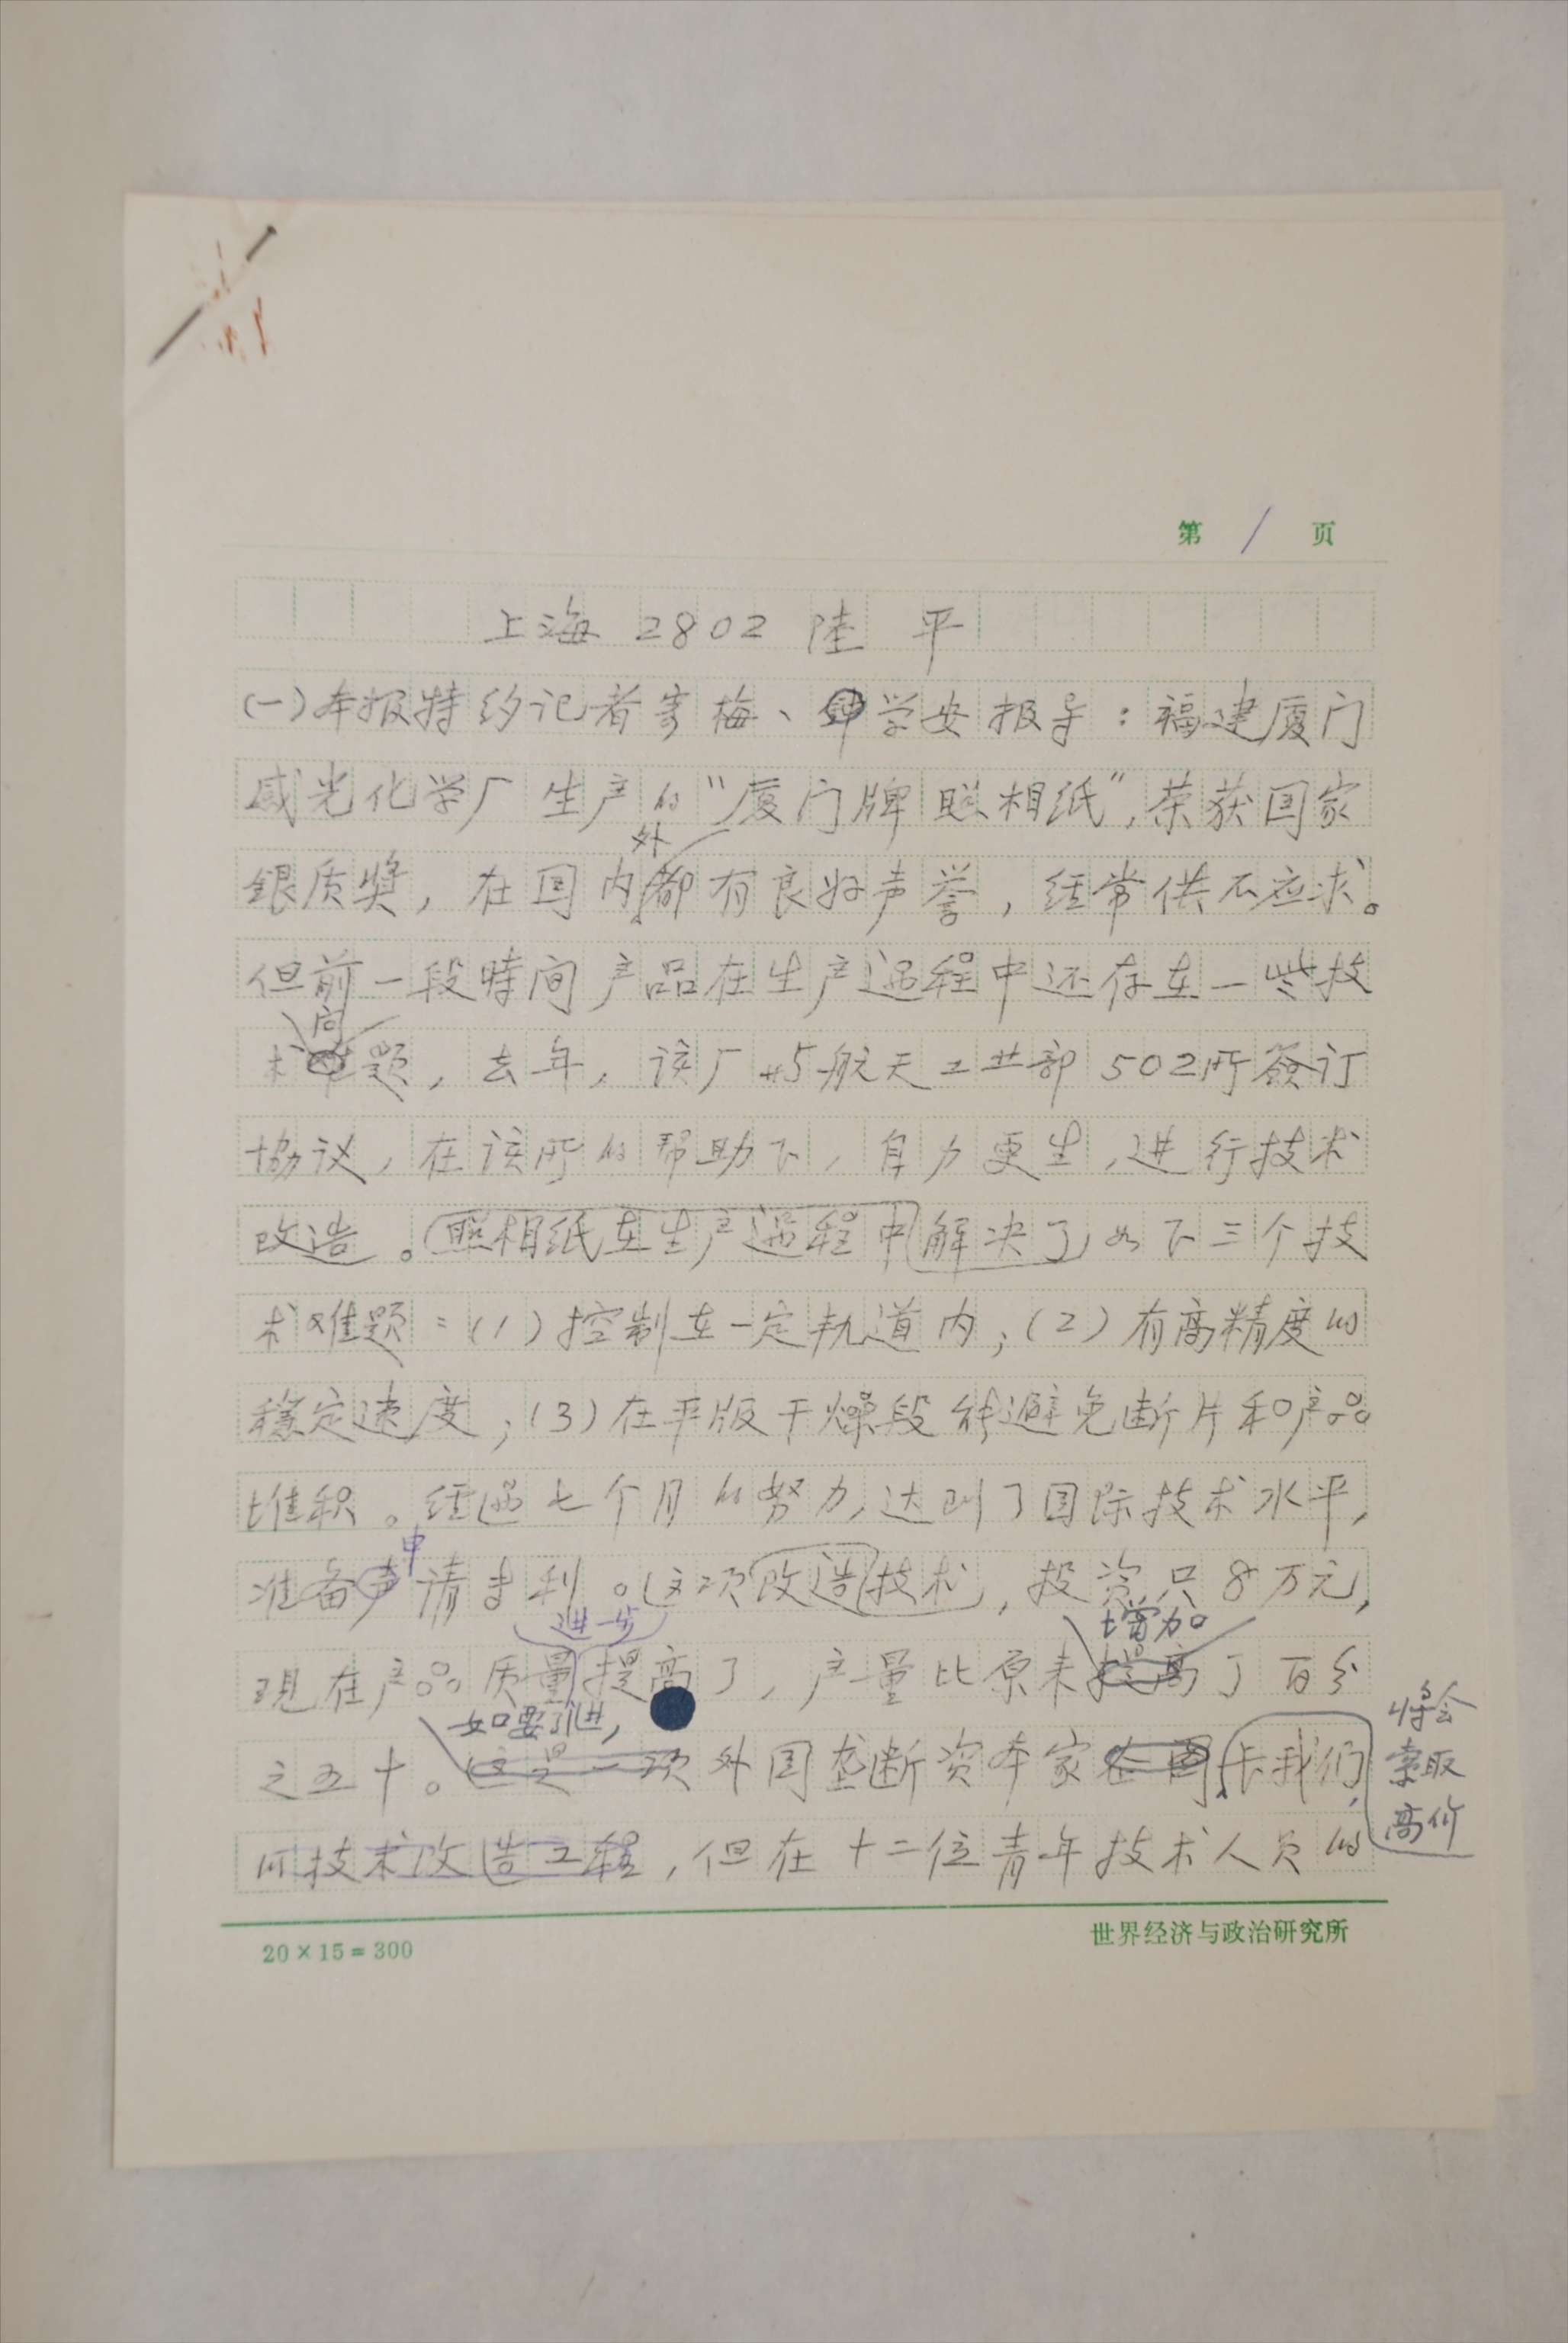 第 1 页
上海 2802 陆 平
(一)本报特约记者寄梅、钟学安报导：福建厦门
感光化学厂生产的“厦门牌照相纸”,荣获国家
外
银质奖，在国内都有良好声誉，经常供不应求。
但前一段时间产品在生产过程中还存在一些技
问
术题，去年，该厂与航天工业部502所签订
协议，在该所的帮助下，自力更生，进行技术
改造。照相纸在生产过程中解决了如下三个技
术难题：(1)控制在一定轨道内；(2)有高精度的
稳定速度；(3)在平版干燥段能避免断片和产品
堆积。经过七个月的努力,达到了国际技术水平，
申
准备声请专利。这项改造技术，投资只8万元，
进一步 增加
现在产品质量提高了，产量比原来提高了百分
如要引进，
之五十。这是一项外国垄断资本家在国卡我们
将会
索取
高价
的技术改造工程，但在十二位青年技术人员的
20×15=300
世界经济与政治研究所